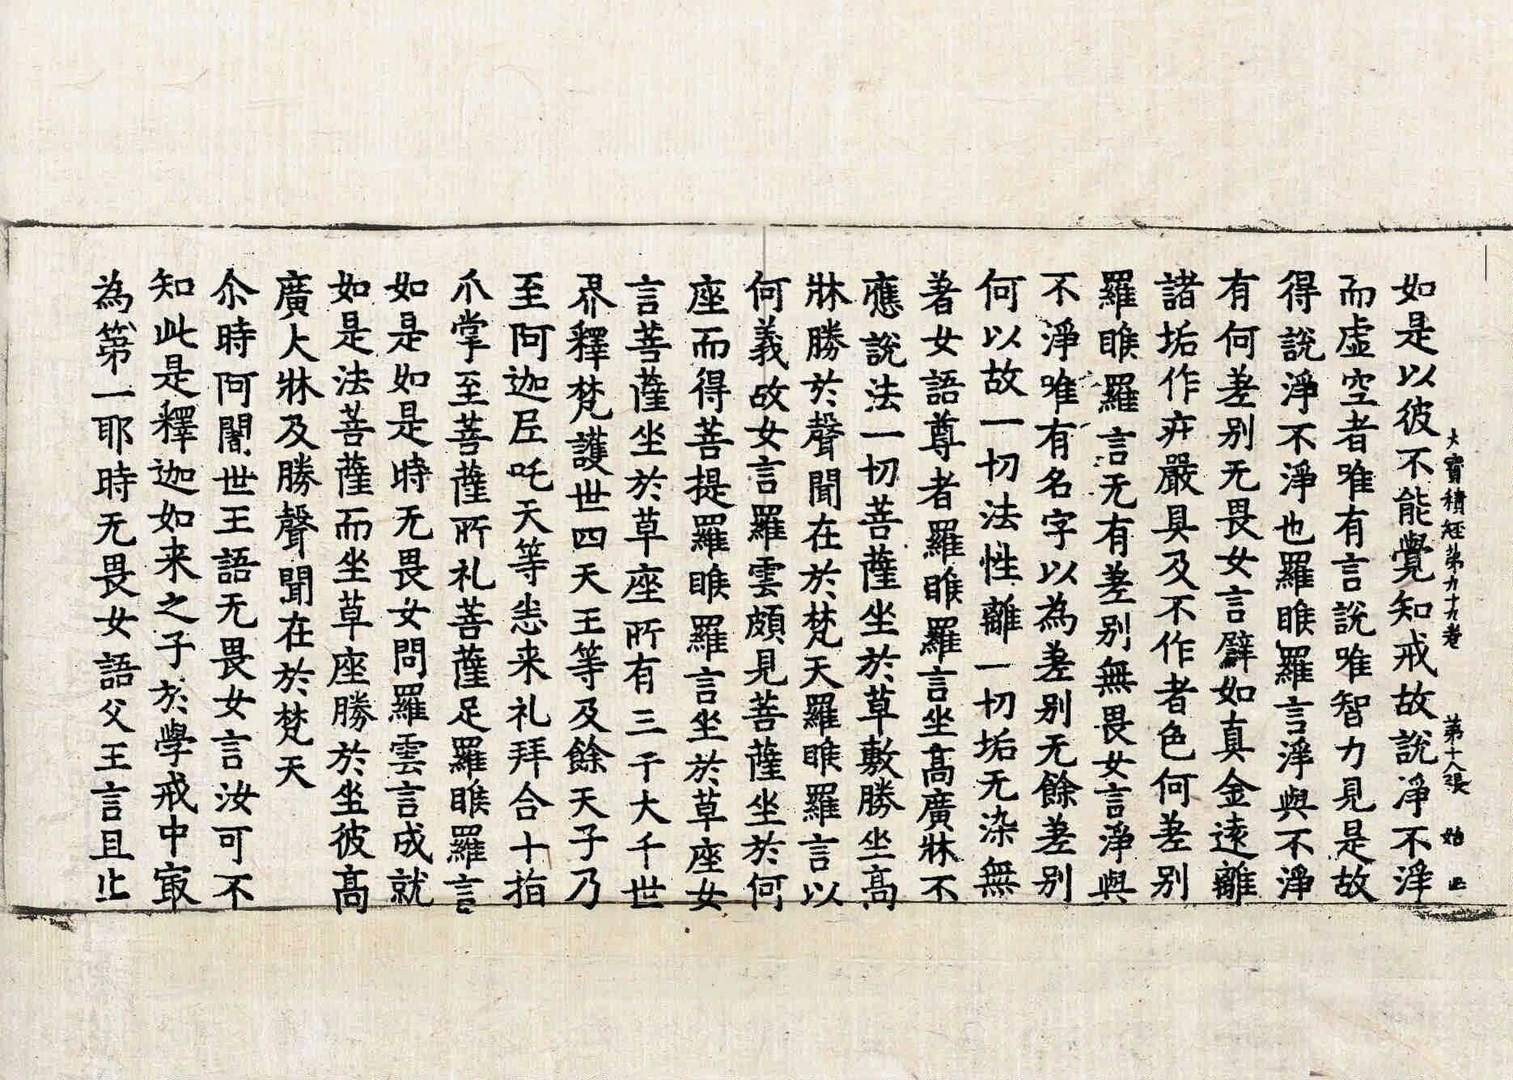 大寶積経第九十九卷 第十八張 始
如是以彼不能覺知戒故說淨不淨
而虛空者唯有言說唯智力見是故
得說淨不淨也羅睺羅言淨與不淨
有何差别无畏女言譬如真金遠離
諸垢作庄嚴具及不作者色何差别
羅睺羅言无有差别無畏女言淨與
不淨唯有名字以為差别无餘差别
何以故一切法性離一切垢无染無
著女語尊者羅睺羅言坐高廣牀不
應說法一切菩薩坐於草敷勝坐高
牀勝於聲聞在於梵天羅睺羅言以
何義故女言羅雲頗見菩薩坐於何
座而得菩提羅睺羅言坐於草座女
言菩薩坐於草座所有三千大千世
界釋梵護世四天王等及餘天子乃
至阿迦𡰱吒天等悉来礼拜合十指
爪掌至菩薩所礼菩薩足羅睺羅言
如是如是時无畏女問羅雲言成就
如是法菩薩而坐草座勝於坐彼高
廣大牀及勝聲聞在於梵天
尒時阿闍世王語无畏女言汝可不
知此是釋迦如来之子於學戒中㝡
為第一耶時无畏女語父王言且止